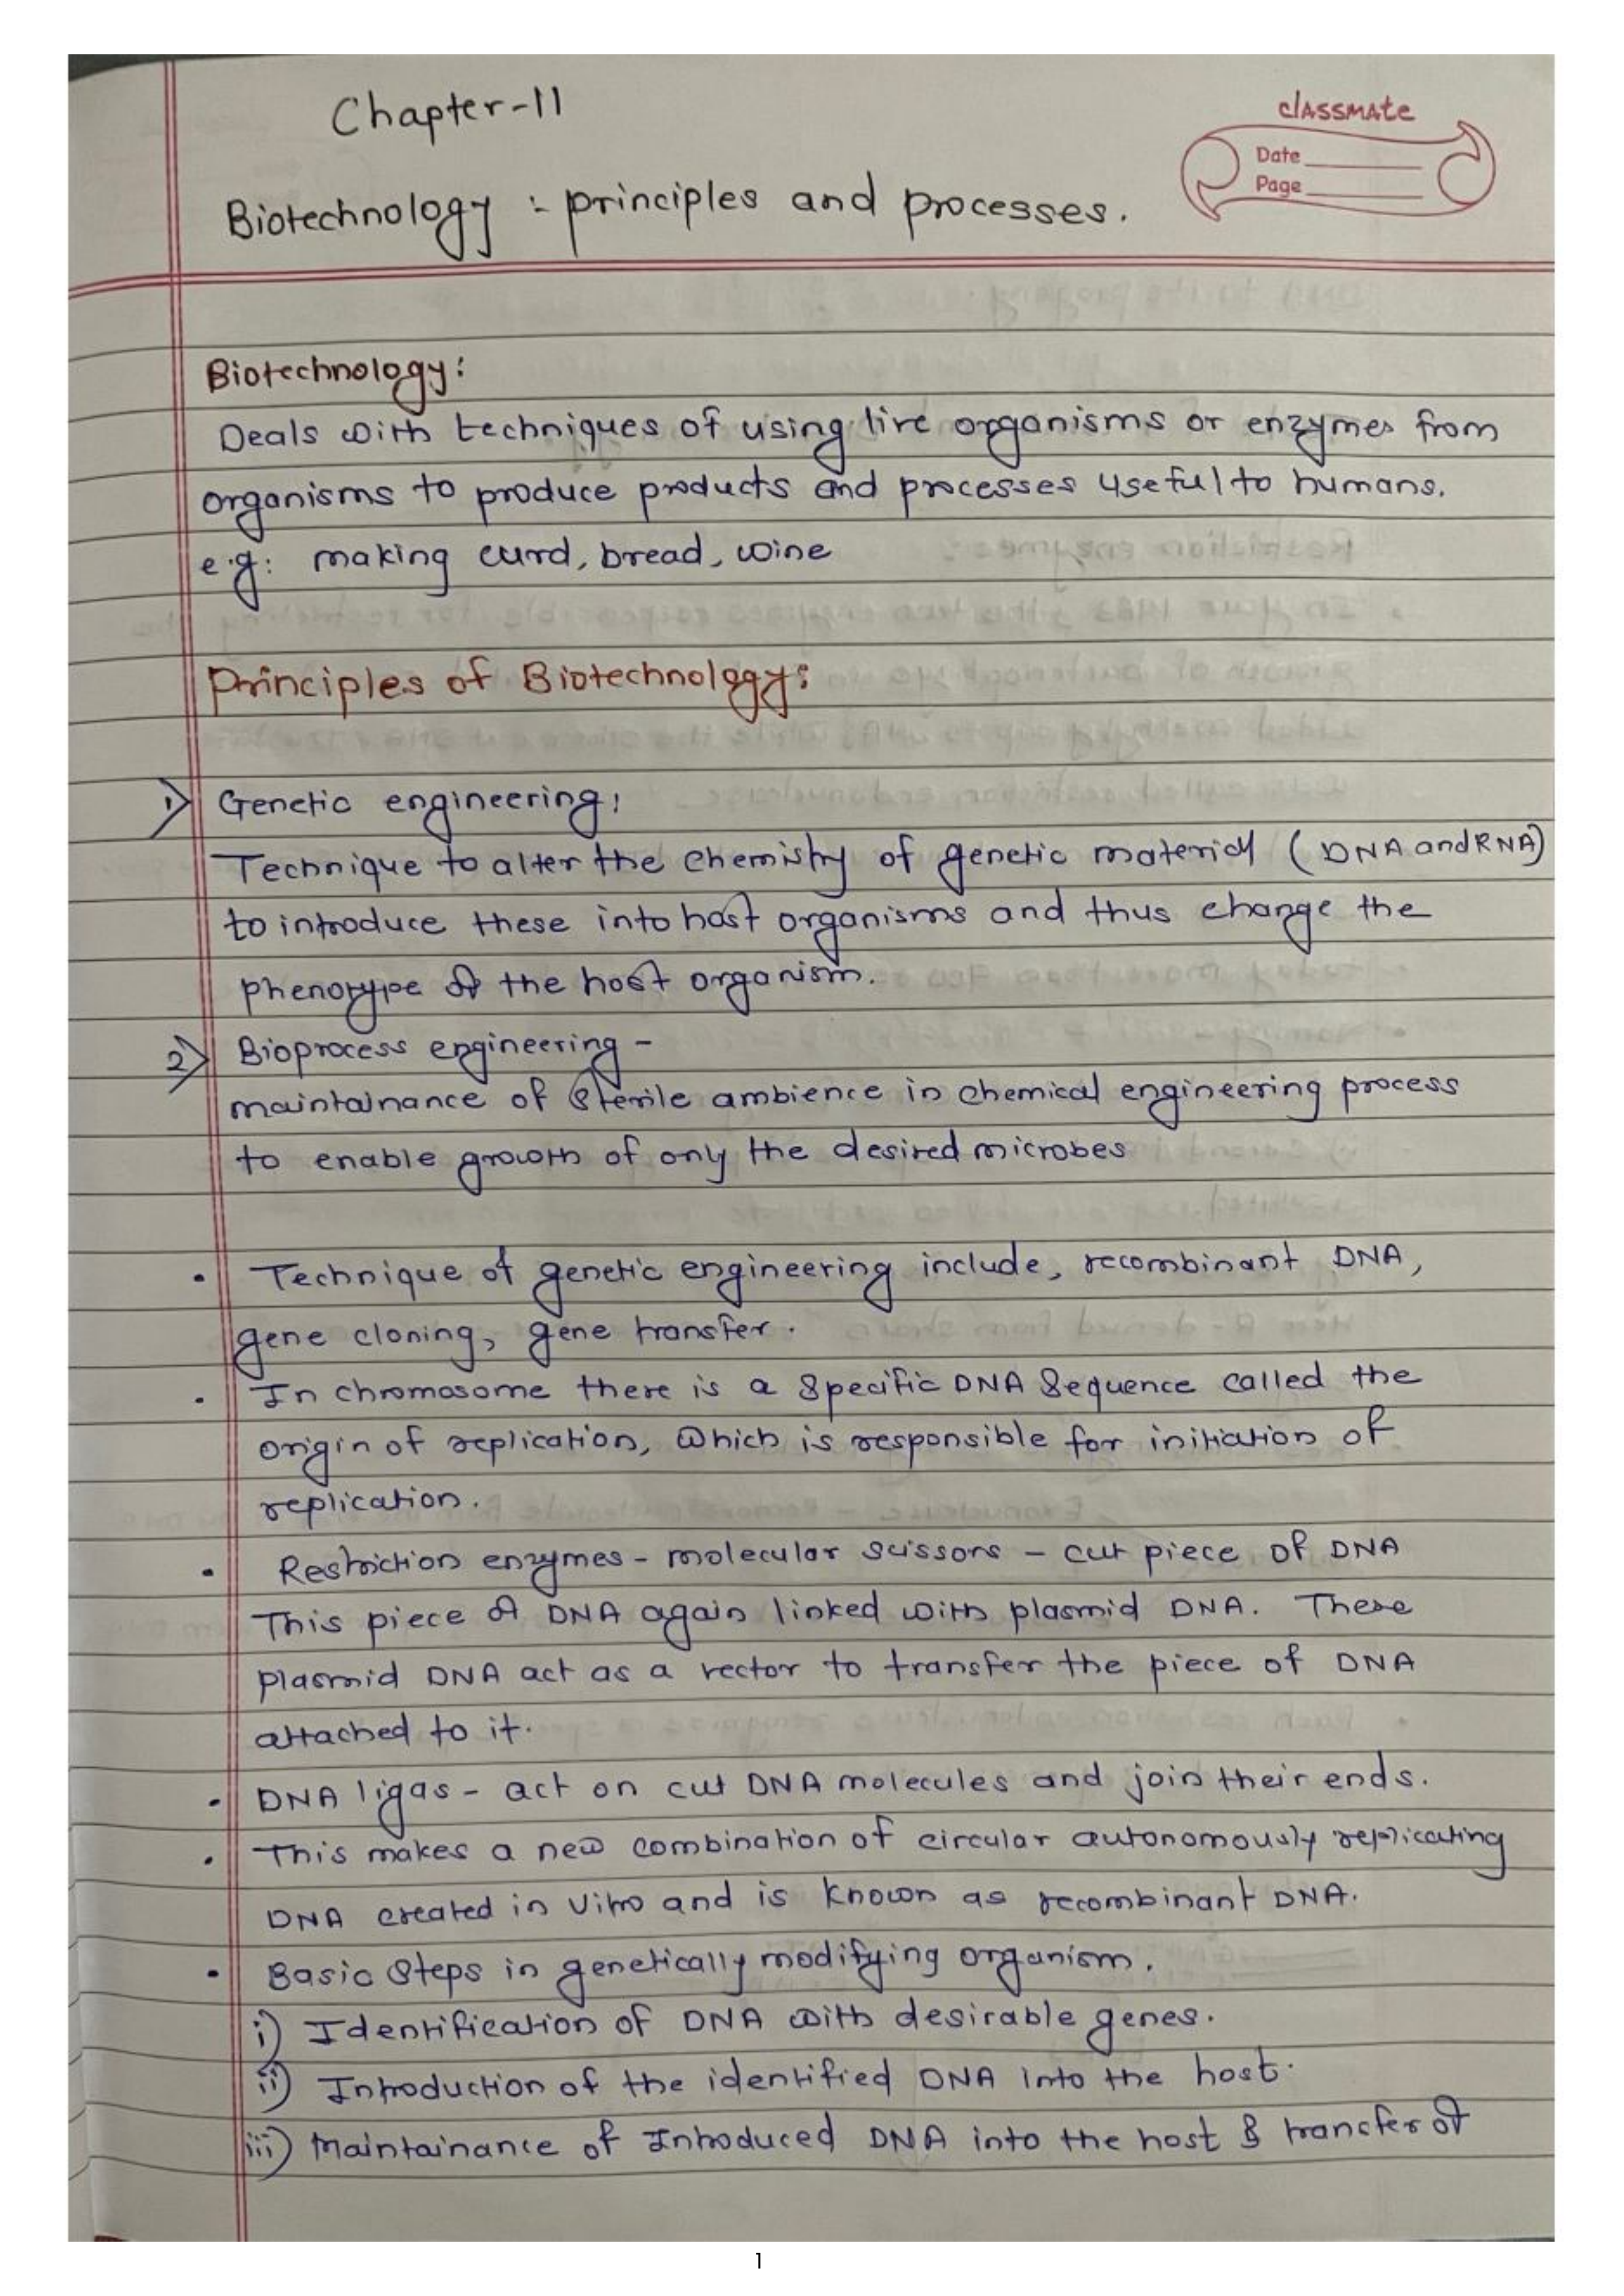 Chapter-11
classmate
Date
Page
Biotechnology : principles and processes.
Biotechnology:
Deals with techniques of using live organisms or enzymes from
organisms to produce products and processes useful to humans.
e.g: making curd, bread, wine
Principles of Biotechnology:
1) Genetic engineering:
Technique to alter the chemistry of genetic material (DNA and RNA)
to introduce these into host organisms and thus change the
phenotype of the host organism.
2) Bioprocess engineering -
maintainance of sterile ambience in chemical engineering process
to enable growth of only the desired microbes
• Technique of genetic engineering include, recombinant DNA,
gene cloning, gene transfer.
• In chromosome there is a specific DNA sequence called the
origin of replication, which is responsible for initiation of
replication.
• Restriction enzymes - molecular scissors - cut piece of DNA
This piece of DNA again linked with plasmid DNA. These
plasmid DNA act as a vector to transfer the piece of DNA
attached to it.
• DNA ligas - act on cut DNA molecules and join their ends.
• This makes a new combination of circular autonomously replicating
DNA created in vitro and is known as recombinant DNA.
• Basic steps in genetically modifying organism.
i) Identification of DNA with desirable genes.
ii) Introduction of the identified DNA into the host.
iii) Maintainance of Introduced DNA into the host & transfer of
1